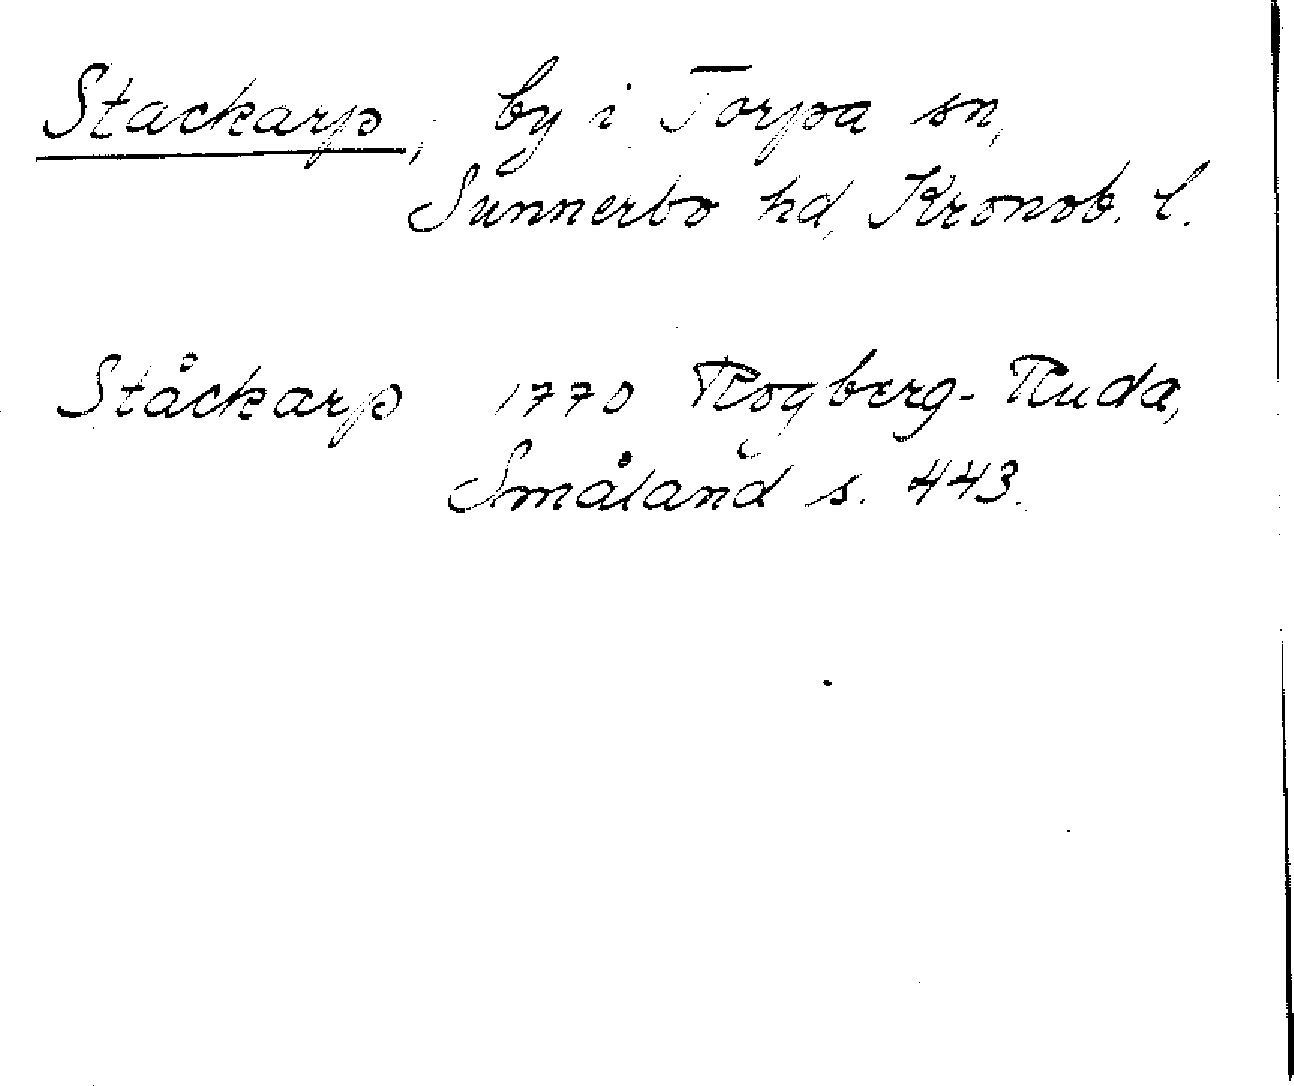 Stackarp, by i Torpa sn,
Sunnerbo hd, Kronob. l.
Ståckarp 1770 Rogberg-Ruda,
Småland s. 443.